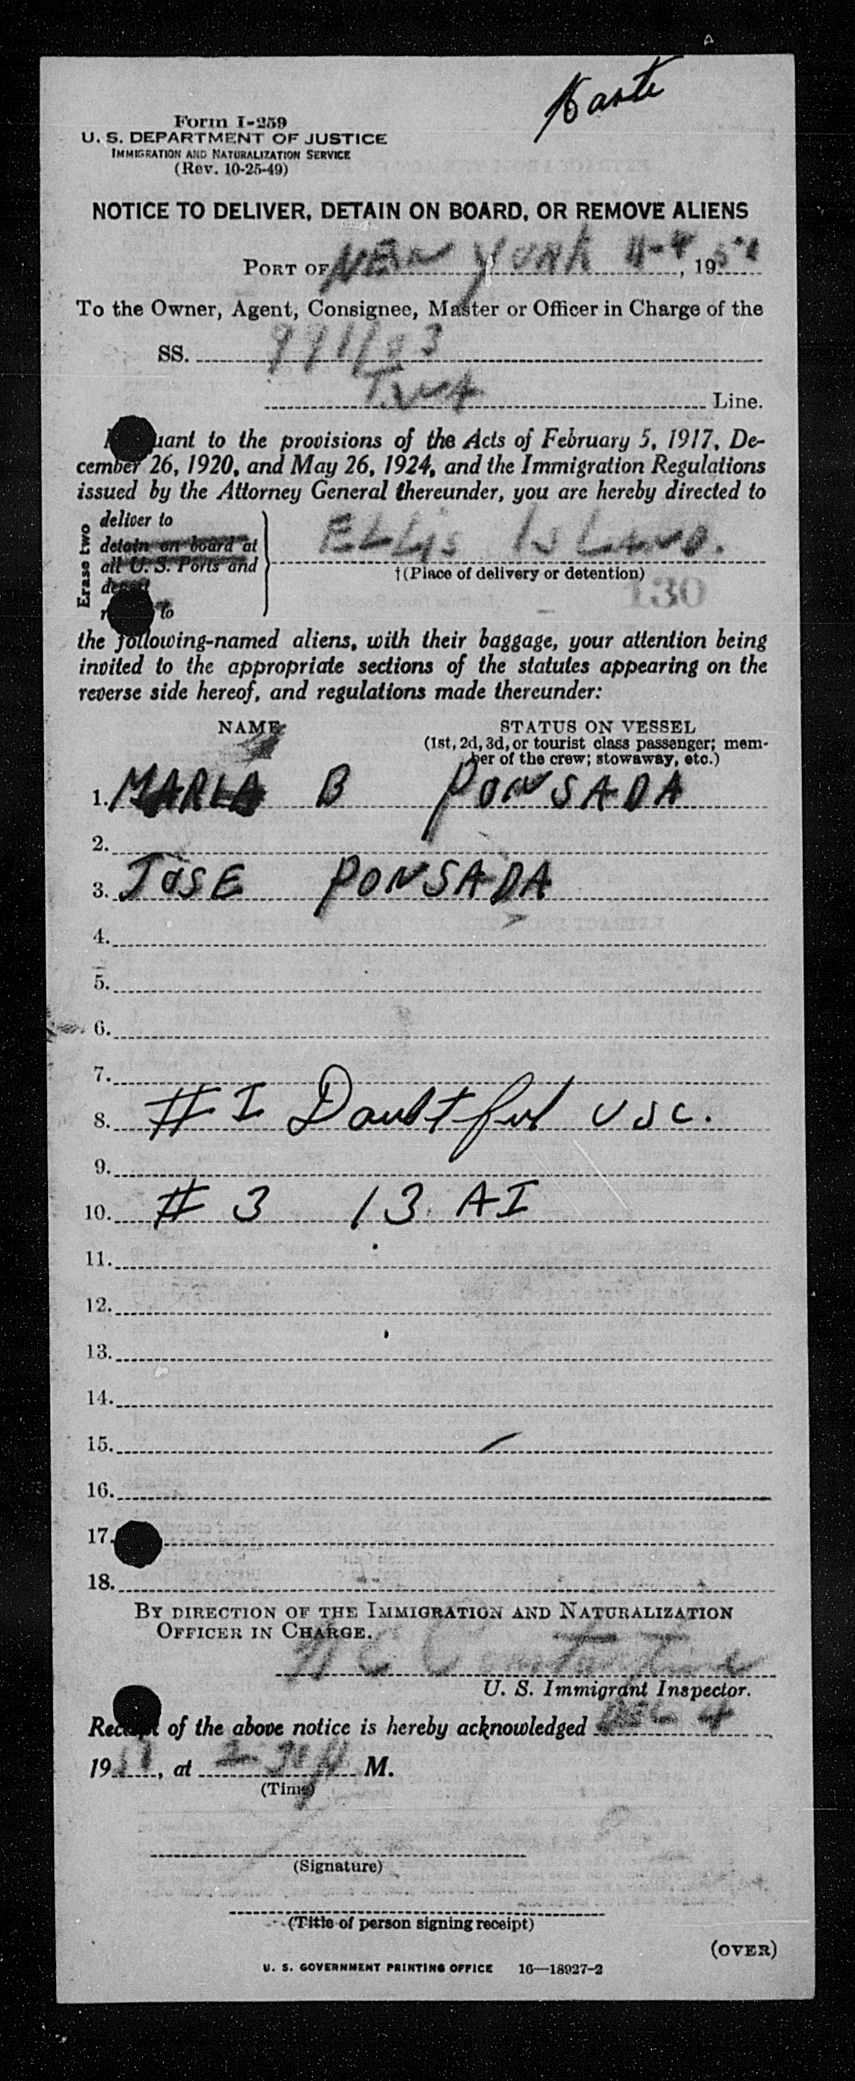 Form I-259
U. S. DEPARTMENT OF JUSTICE
IMMIGRATION AND NATURALIZATION SERVICE
(Rev. 10-25-49)
NOTICE TO DELIVER, DETAIN ON BOARD, OR REMOVE ALIENS
PORT OF NEW YORK, 19
To the Owner, Agent, Consignee, Master or Officer in Charge of the
SS. 991/03
TWA Line.
to the provisions of the Acts of February 5, 1917, De-
cember 26, 1920, and May 26, 1924, and the Immigration Regulations
issued by the Attorney General thereunder, you are hereby directed to
Erase two
deliver to
detain on board at
all U. S. Ports and
to
ELLIS ISLAND.
†(Place of delivery or detention)
130
the following-named aliens, with their baggage, your attention being
invited to the appropriate sections of the statutes appearing on the
reverse side hereof, and regulations made thereunder:
NAME STATUS ON VESSEL
(1st, 2d, 3d, or tourist class passenger; mem-
ber of the crew; stowaway, etc.)
1. MARIA B PONSADA
2.
3. JOSE PONSADA
4.
5.
6.
7.
8. # I Doubtful USC.
9.
10. # 3 13 AI
11.
12.
13.
14.
15.
16.
17.
18.
BY DIRECTION OF THE IMMIGRATION AND NATURALIZATION
OFFICER IN CHARGE.
U. S. Immigrant Inspector.
Receipt of the above notice is hereby acknowledged
19, at M.
(Time)
(Signature)
(Title of person signing receipt)
(OVER)
U. S. GOVERNMENT PRINTING OFFICE 16—18927-2